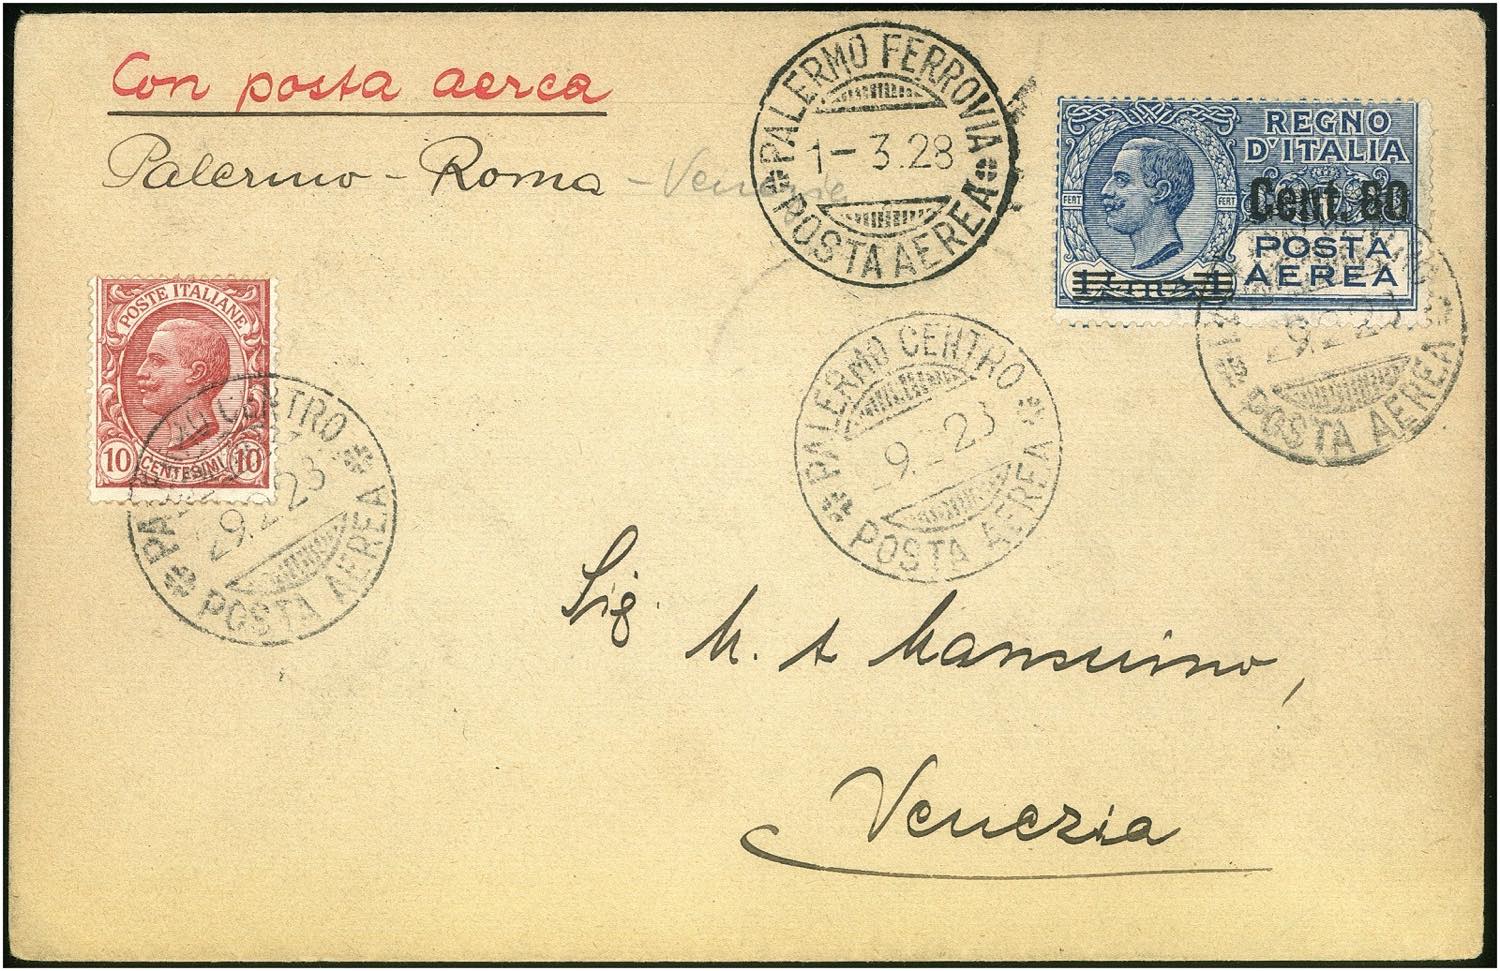 Con posta aerea
Palermo - Roma - Venezia
PALERMO FERROVIA
1-3.28
POSTA AEREA
REGNO
D'ITALIA
Cent. 80
FERT
FERT
POSTA
AEREA
POSTE ITALIANE
10 CENTESIMI 10
CENTRO
29.2.28
POSTA AEREA
PALERMO CENTRO
29.2.28
POSTA AEREA
POSTA AEREA
Sig. M. A. Mansuino,
Venezia